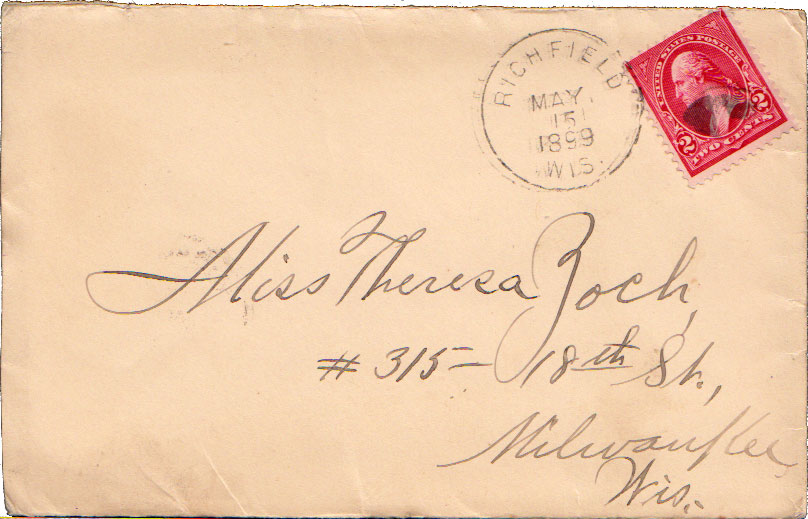 RICHFIELD
MAY
15
1899
WIS.
UNITED STATES POSTAGE
2 2
TWO CENTS
Miss Theresa Zoch,
# 315 – 18th St.,
Milwaukee
Wis.